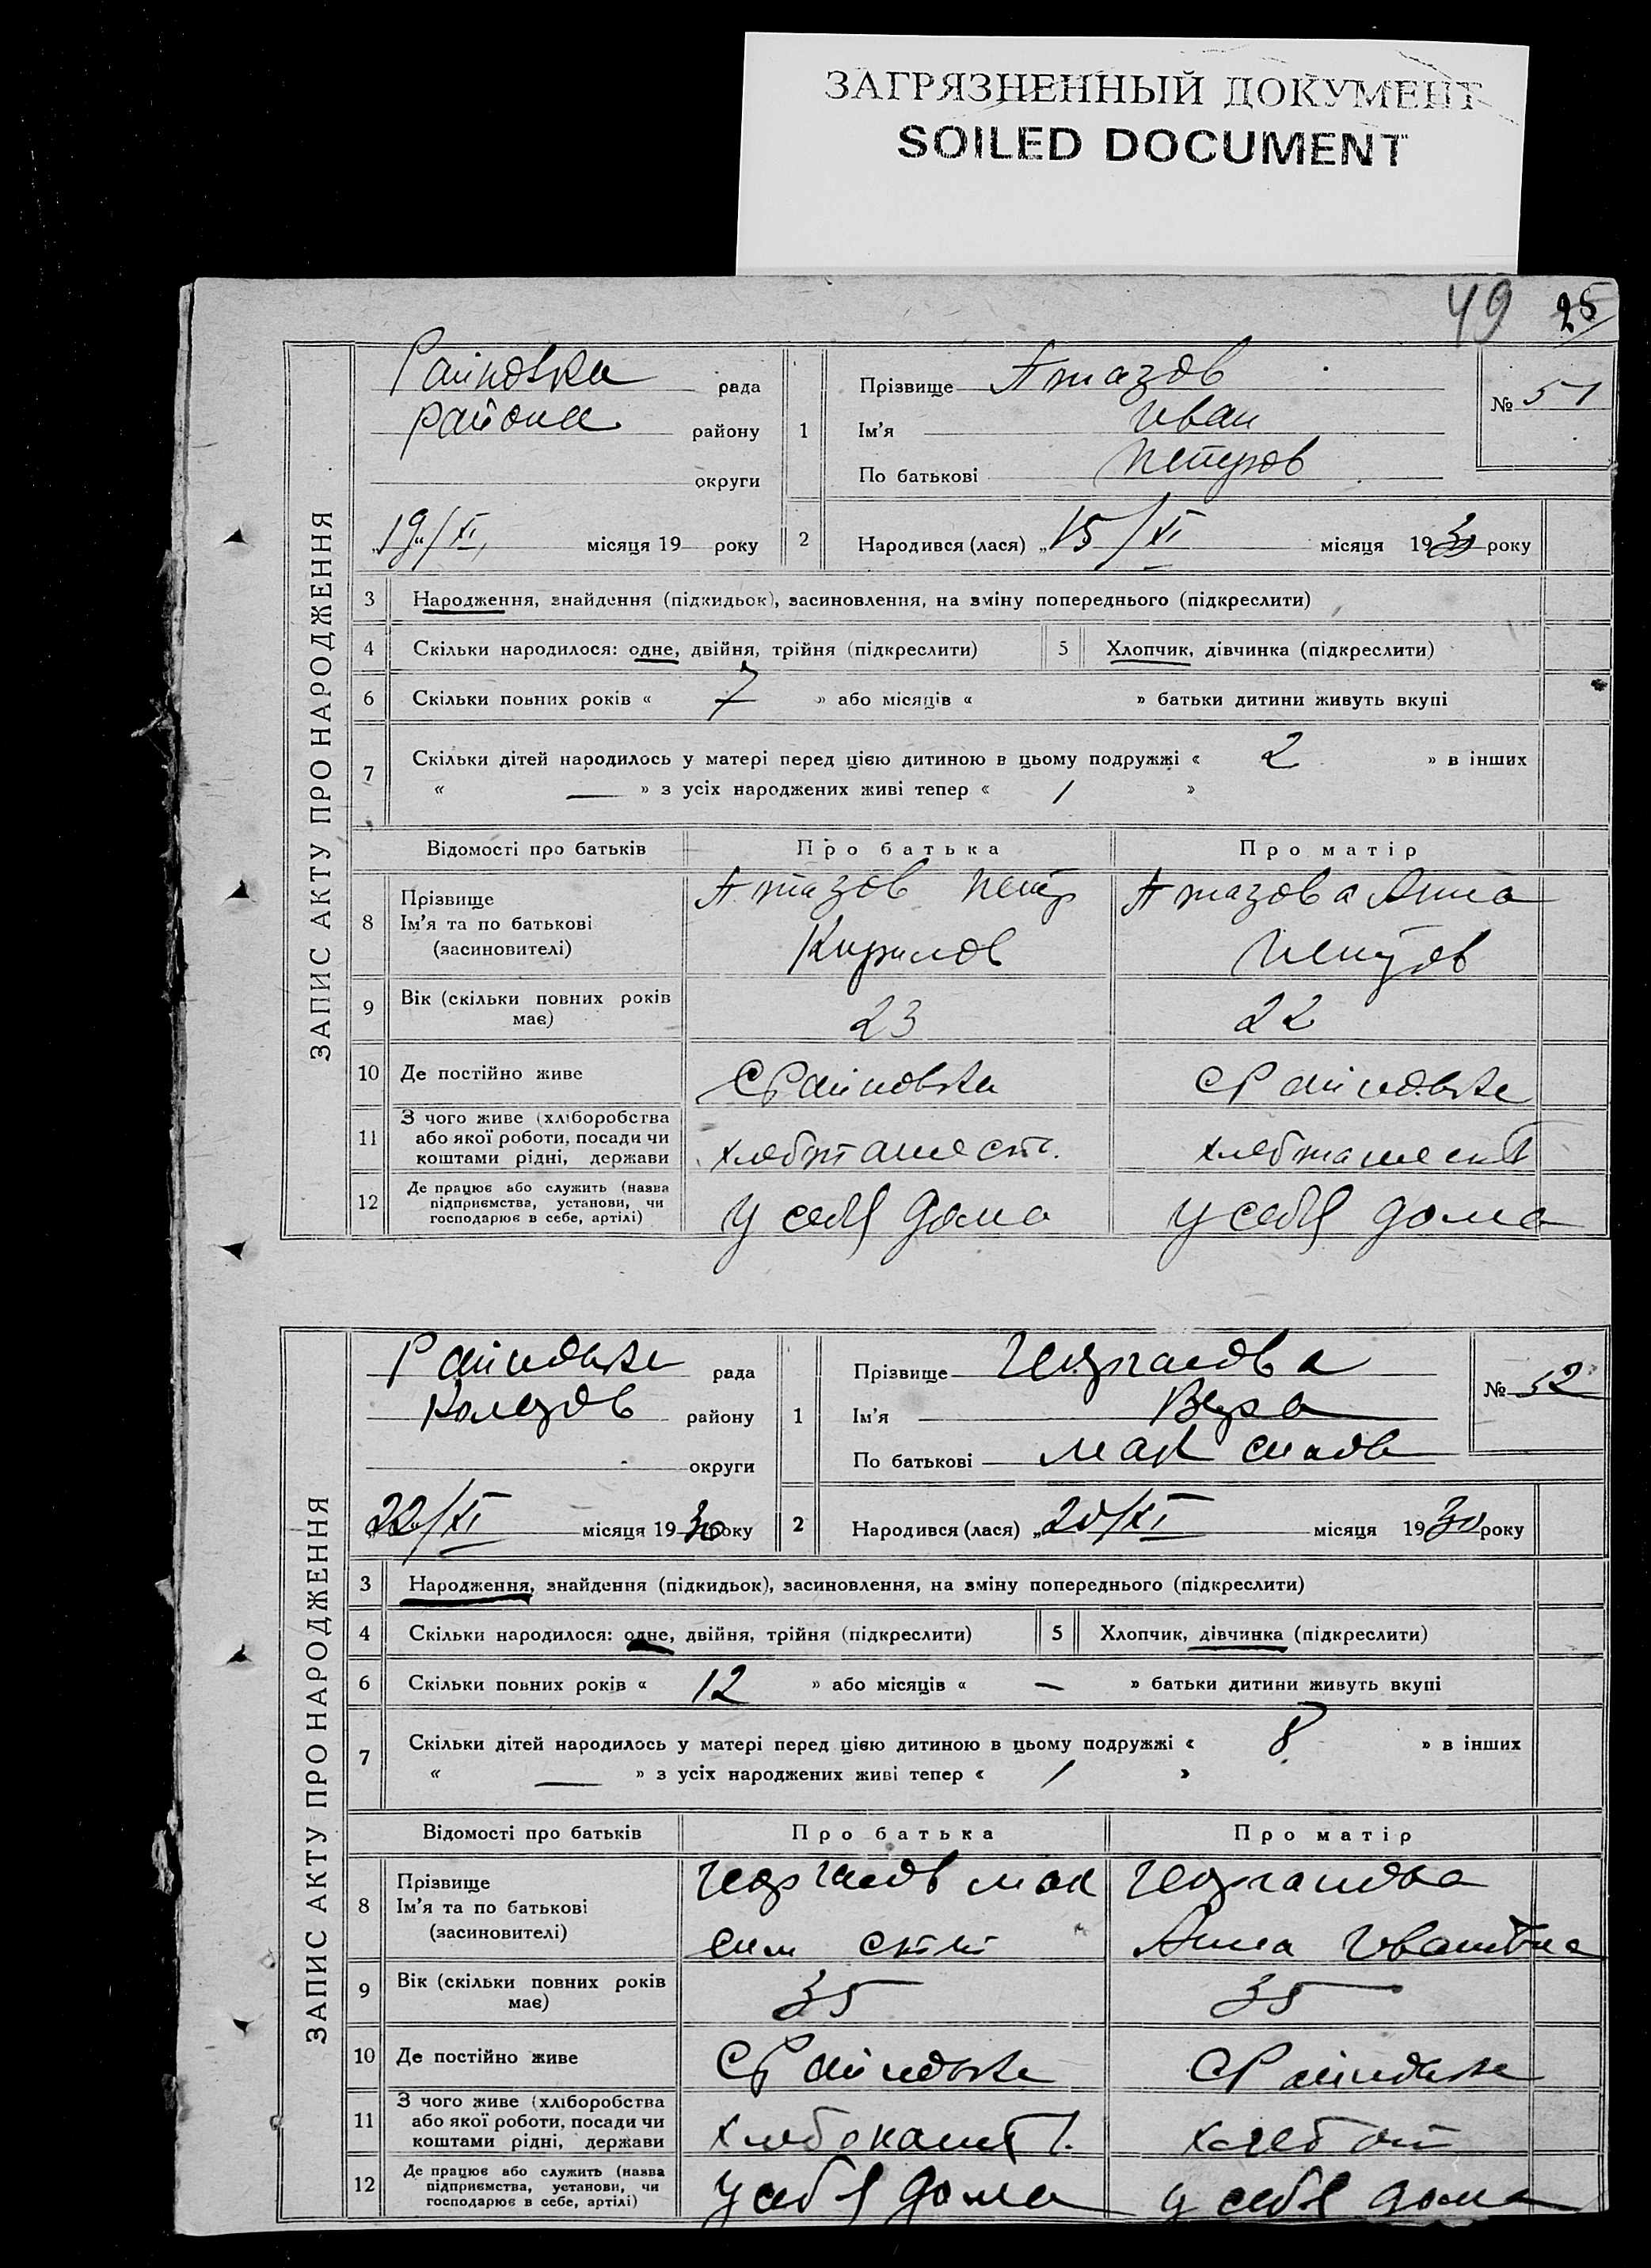 ЗАГРЯЗНЕННЫЙ ДОКУМЕНТ
SOILED DOCUMENT
49 25
ЗАПИС АКТУ ПРО НАРОДЖЕННЯ
Райновка рада
района району
округи
„19“/XI, місяця 19 року
1
Прізвище
Ім'я Иван
По батькові Петров
№ 51
2 Народився (лася) „15/XI місяця 1930 року
3 Народження, знайдення (підкидьок), засиновлення, на зміну попереднього (підкреслити)
4 Скільки народилося: одне, двійня, трійня (підкреслити) 5 Хлопчик, дівчинка (підкреслити)
6 Скільки повних років « 7 » або місяців « » батьки дитини живуть вкупі
7 Скільки дітей народилось у матері перед цією дитиною в цьому подружжі « 2 » в інших
« — » з усіх народжених живі тепер « 1 »
Відомості про батьків Про батька Про матір
8 Прізвище Петр Анна
Ім'я та по батькові
(засиновителі) Кирилов
9 Вік (скільки повних років
має) 23 22
10 Де постійно живе С Райновка С Райновка
11 З чого живе (хліборобства
або якої роботи, посади чи
коштами рідні, держави
12 Де працює або служить (назва
підприємства, установи, чи
господарює в себе, артілі) у себя дома у себя дома
ЗАПИС АКТУ ПРО НАРОДЖЕННЯ
Райновка рада
району
округи
„22“/XI місяця 1930 року
1
Прізвище
Ім'я Вера
По батькові
№ 52
2 Народився (лася) „20/XI місяця 1930 року
3 Народження, знайдення (підкидьок), засиновлення, на зміну попереднього (підкреслити)
4 Скільки народилося: одне, двійня, трійня (підкреслити) 5 Хлопчик, дівчинка (підкреслити)
6 Скільки повних років « 12 » або місяців « — » батьки дитини живуть вкупі
7 Скільки дітей народилось у матері перед цією дитиною в цьому подружжі « 8 » в інших
« — » з усіх народжених живі тепер « 1 »
Відомості про батьків Про батька Про матір
8 Прізвище мак
Ім'я та по батькові
(засиновителі) сим Анна
9 Вік (скільки повних років
має) 35 35
10 Де постійно живе С Райновка С Райновка
11 З чого живе (хліборобства
або якої роботи, посади чи
коштами рідні, держави
12 Де працює або служить (назва
підприємства, установи, чи
господарює в себе, артілі) у себя дома у себя дома